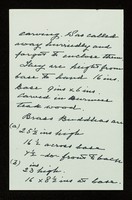 carving. Was called
away hurriedly and
forgot to enclose them
They are height from
base to hand 16 ins.
Base 9 ins x 6 ins.
Carved in Burmese
teak wood.
Brass Buddhas are
(1) 25½ ins high
16½ across base
9½ do front to back
(2) 23 high.
16 x 8½ ins to base.